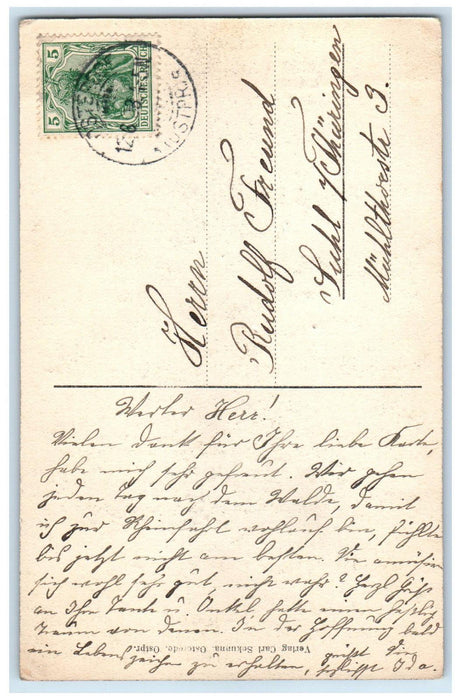 5 DEUTSCHES REICH 5
12.6.
OSTPR.
Herrn
Rudolf Freund
Suhl i/Thüringen
Mühlthorstr 3.
Werter Herr!
Vielen Dank für Ihre liebe Karte,
habe mich sehr gefreut. Wir gehen
jeden Tag nach dem Walde, damit
ich zur wohlauf bin, fühlte
bis jetzt nicht am besten. Sie amüsieren
sich wohl sehr gut, nicht wahr? Herzl Grüße
an Ihre Tante u. Onkel hatte einen
Traum von denen. In der Hoffnung bald
ein Lebenszeichen zu erhalten, grüßt Sie
Ida.
Verlag Carl Sekunna, Osterode, Ostpr.